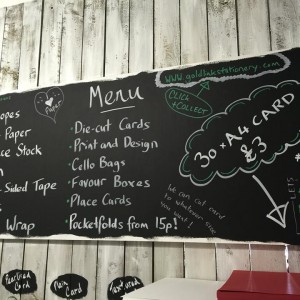 Menu
www.goldleafstationery.com
CLICK + COLLECT
Paper
Paper
Stock
Sided Tape
Wrap
Die-cut Cards
Print and Design
Cello Bags
Favour Boxes
Place Cards
Pocketfolds from 15p!
30 x A4 CARD
£3
We can cut card
to whatever size
you want!
LETS
Pearlised
Card
Plain
Card
Textured